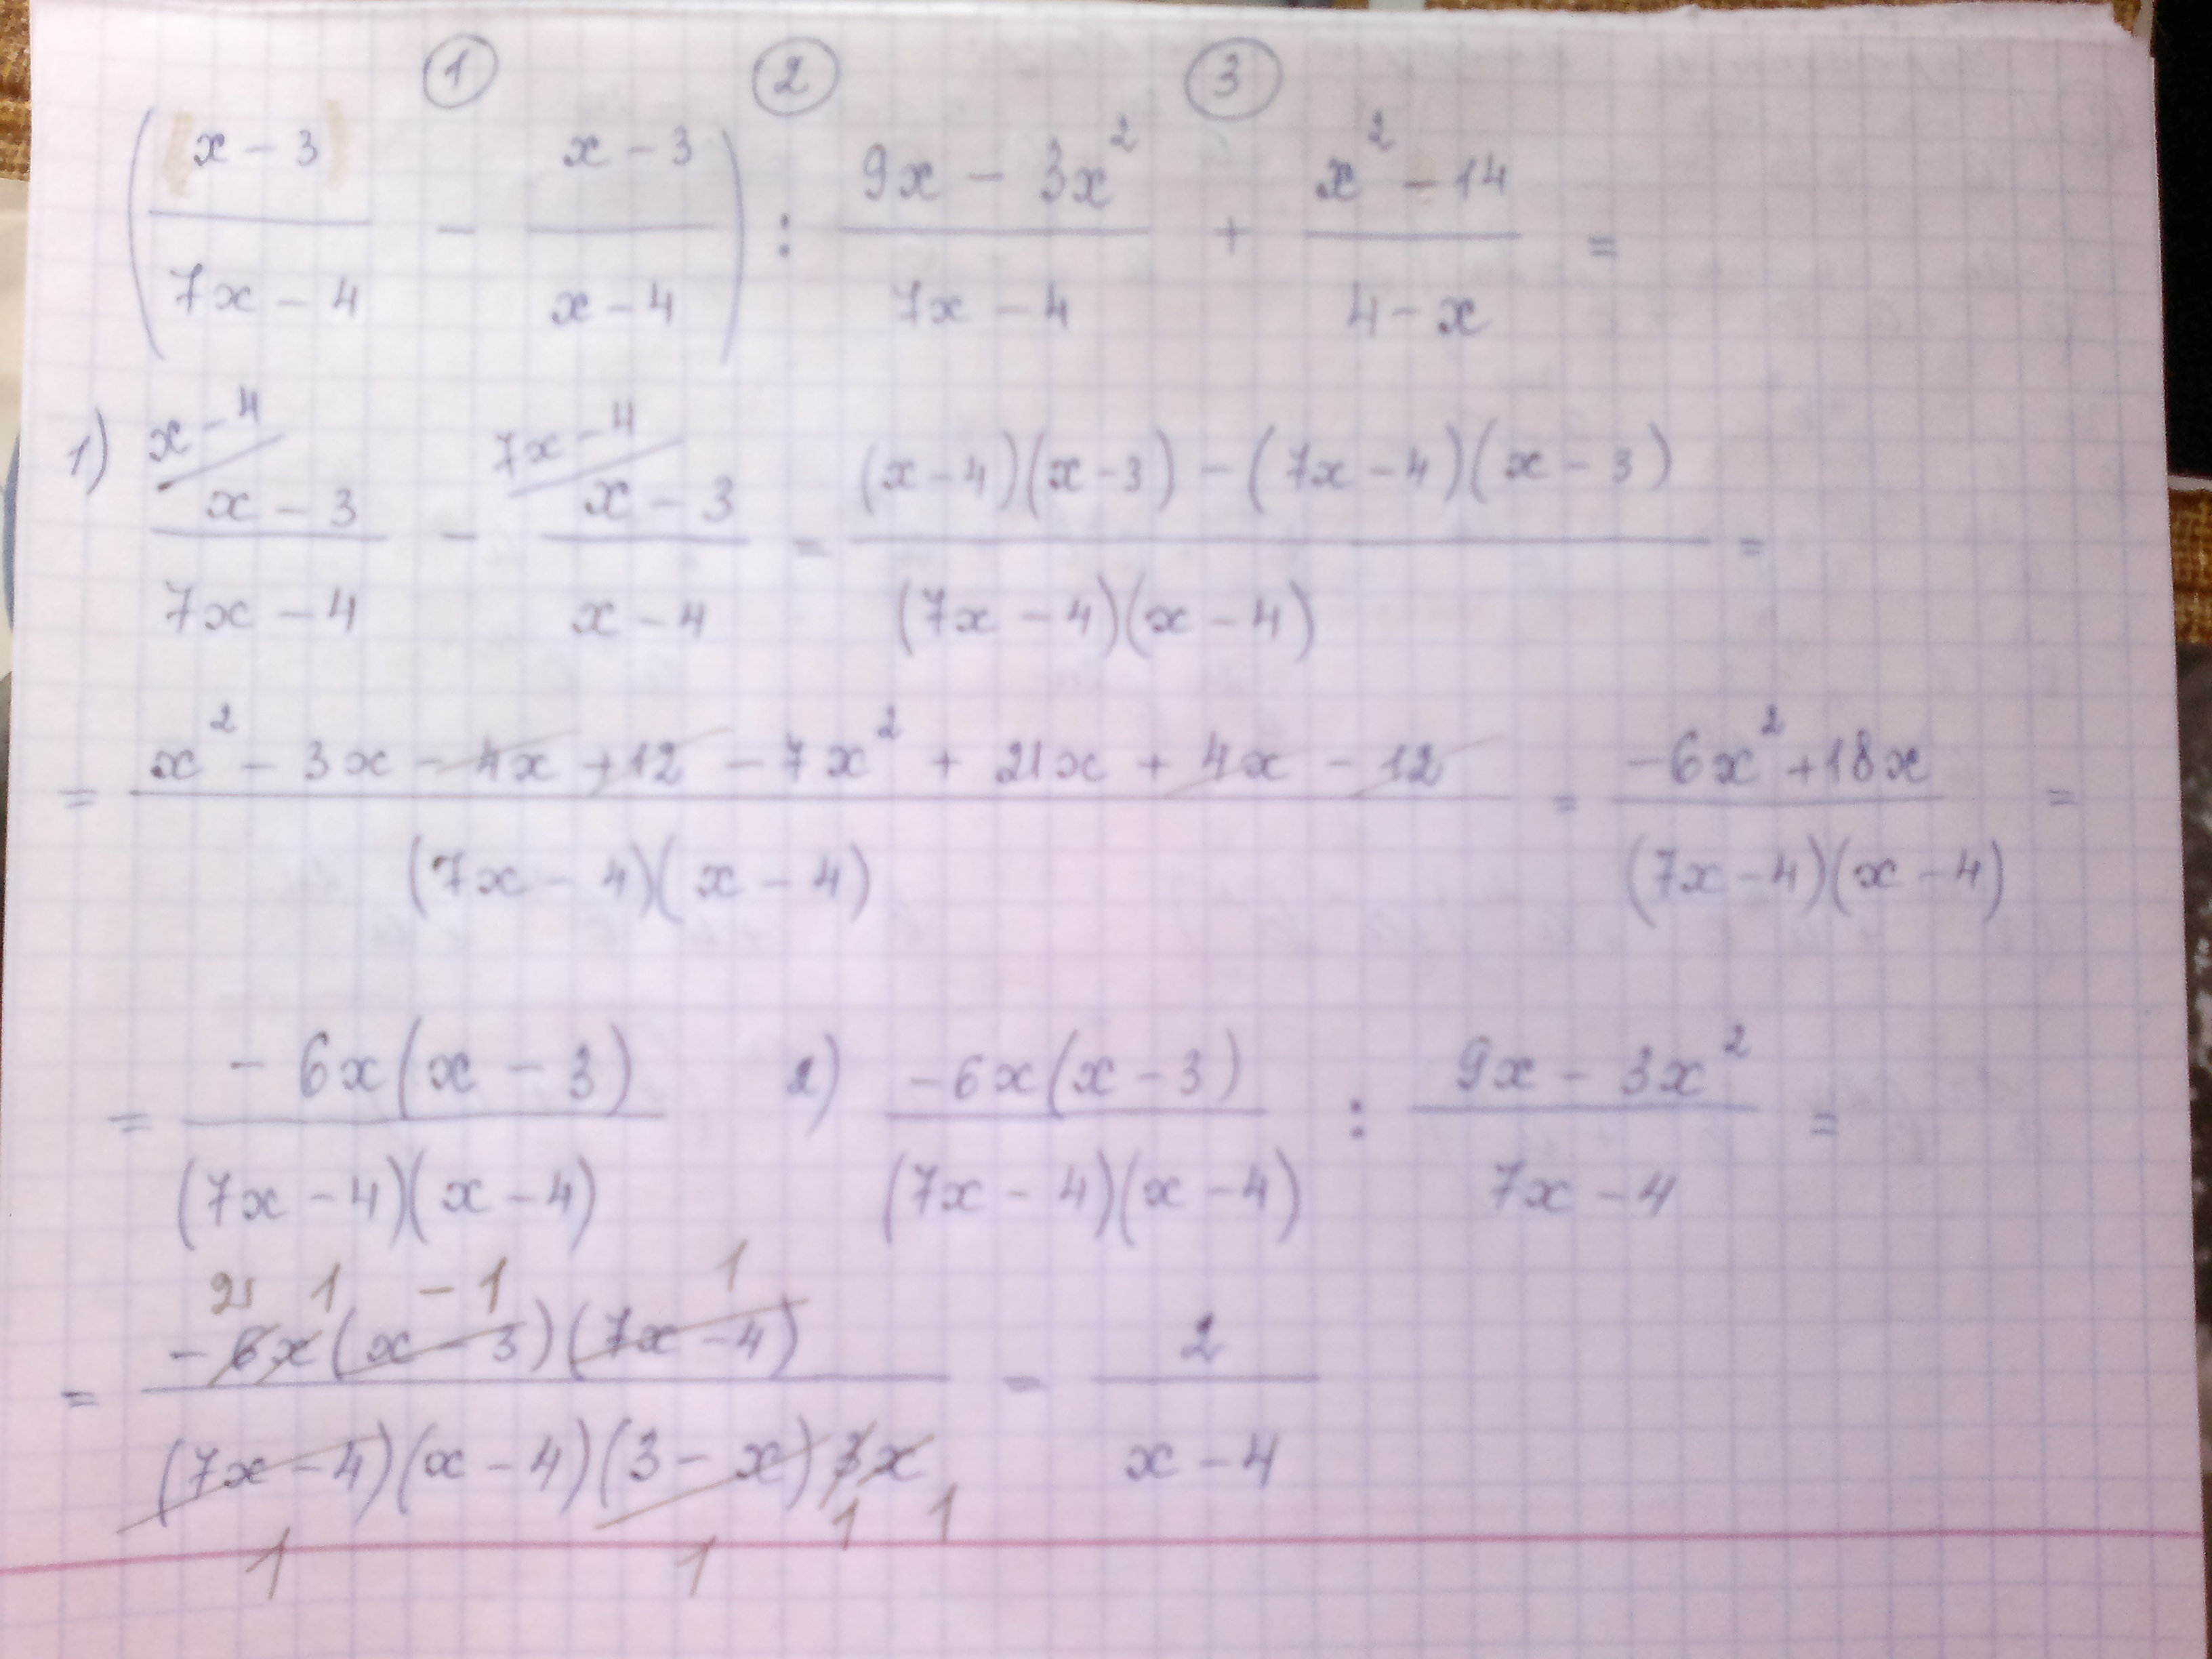 ① ② ③
( (x-3)/(7x-4) - (x-3)/(x-4) ) : (9x-3x²)/(7x-4) + (x²-14)/(4-x) =
1) x-4 / (x-3)/(7x-4) - 7x-4 / (x-3)/(x-4) = ((x-4)(x-3) - (7x-4)(x-3))/((7x-4)(x-4)) =
= (x² - 3x - 4x + 12 - 7x² + 21x + 4x - 12)/((7x-4)(x-4)) = (-6x² + 18x)/((7x-4)(x-4)) =
= (-6x(x-3))/((7x-4)(x-4)) 2) (-6x(x-3))/((7x-4)(x-4)) : (9x-3x²)/(7x-4) =
2 1 -1 1
= (-6x(x-3)(7x-4))/((7x-4)(x-4)(3-x)3x) = 2/(x-4)
1 1 1 1